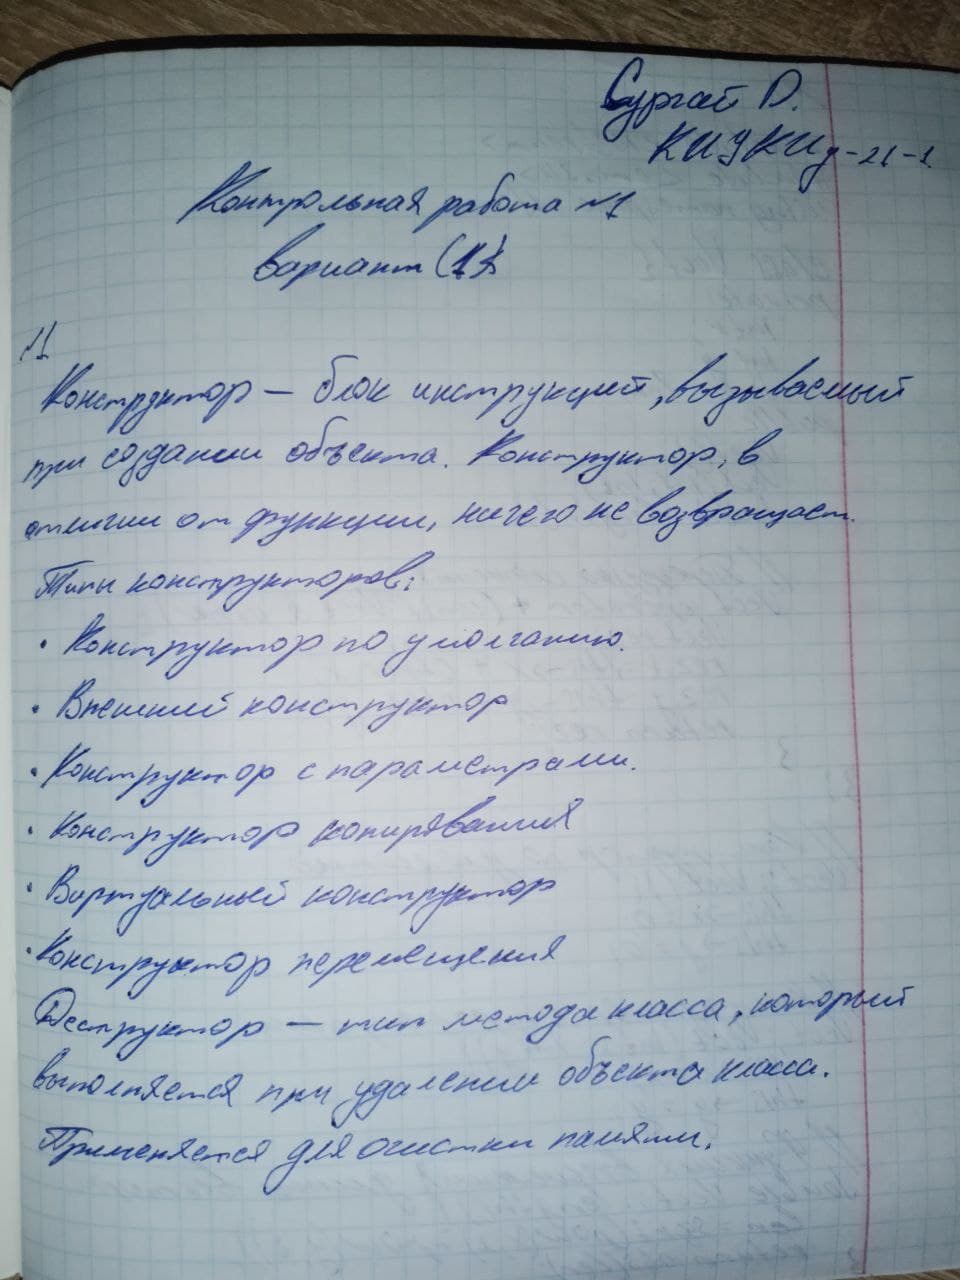 Сургай D.
КИУКИу-21-1
Контрольная работа №1
вариант (1)
№1
Конструктор — блок инструкций, вызываемый
при создании объекта. Конструктор, в
отличии от функции, ничего не возвращает.
Типы конструкторов:
• Конструктор по умолчанию.
• Внешний конструктор
• Конструктор с параметрами.
• Конструктор копирования
• Виртуальный конструктор
• Конструктор перемещения
Деструктор — тип метода класса, который
выполняется при удалении объекта класса.
Применяется для очистки памяти.